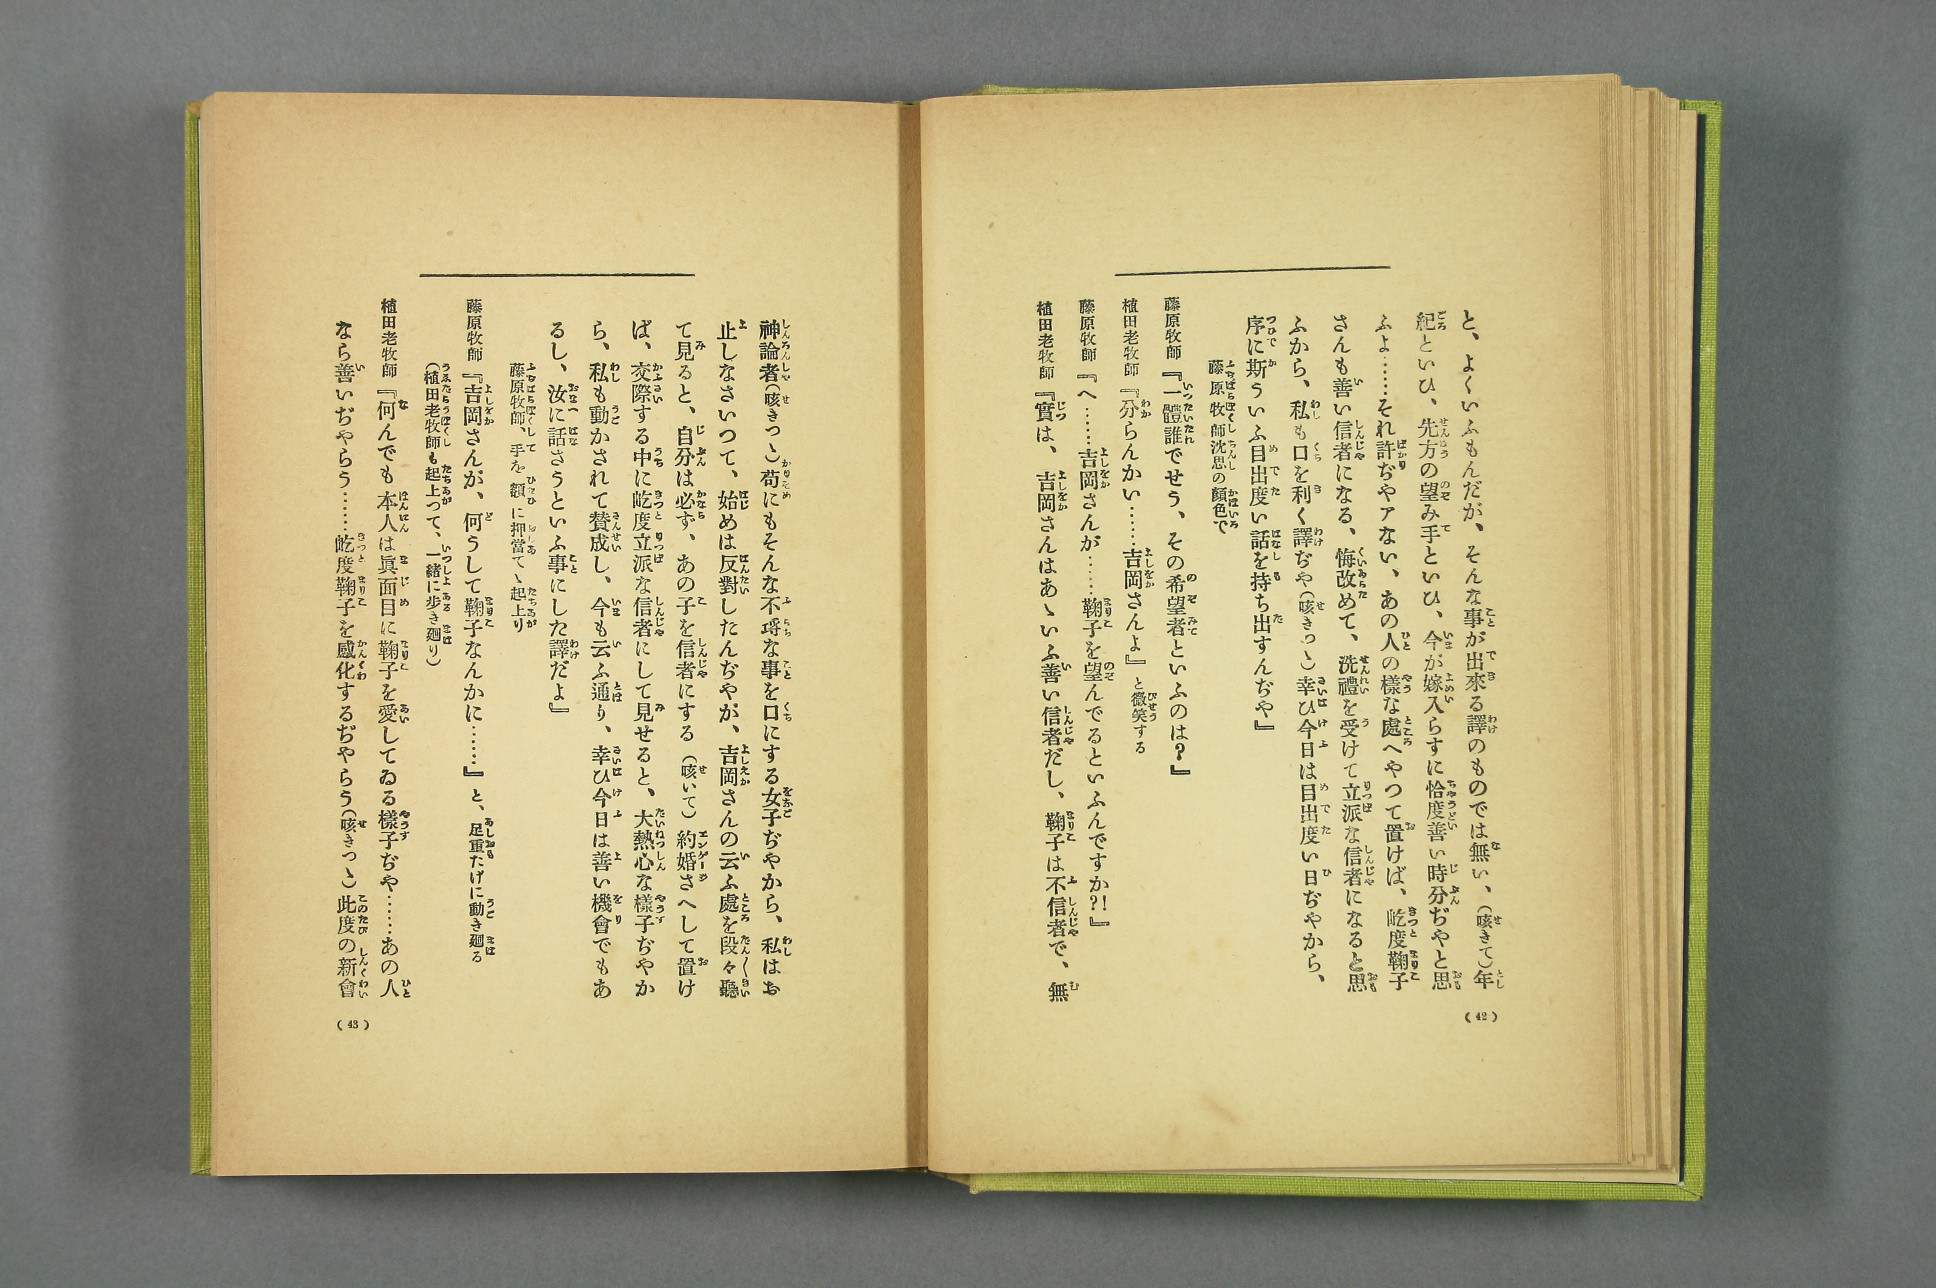 と、よくいふもんだが、そんな事が出來る譯のものでは無い、（咳きて）年
紀といひ、先方の望み手といひ、今が嫁入らすに恰度善い時分ぢやと思
ふよ……それ許ぢやァない、あの人の樣な處へやつて置けば、屹度鞠子
さんも善い信者になる、悔改めて、洗禮を受けて立派な信者になると思
ふから、私も口を利く譯ぢや（咳きつゝ）幸ひ今日は目出度い日ぢやから、
序に斯ういふ目出度い話を持ち出すんぢや』
藤原牧師沈思の顏色で
藤原牧師『一體誰でせう、その希望者といふのは？』
植田老牧師『分らんかい……吉岡さんよ』と微笑する
藤原牧師『へ……吉岡さんが……鞠子を望んでるといふんですか？！』
植田老牧師『實は、吉岡さんはあゝいふ善い信者だし、鞠子は不信者で、無
（42）
神論者（咳きつゝ）苟にもそんな不埒な事を口にする女子ぢやから、私はお
止しなさいつて、始めは反對したんぢやが、吉岡さんの云ふ處を段々聽い
て見ると、自分は必ず、あの子を信者にする（咳いて）約婚さへして置け
ば、交際する中に屹度立派な信者にして見せると、大熱心な樣子ぢやか
ら、私も動かされて賛成し、今も云ふ通り、幸ひ今日は善い機會でもあ
るし、汝に話さうといふ事にした譯だよ』
藤原牧師、手を額に押當てゝ起上り
藤原牧師『吉岡さんが、何うして鞠子なんかに……』と、足重たげに動き廻る
（植田老牧師も起上つて、一緖に步き廻り）
植田老牧師『何んでも本人は眞面目に鞠子を愛してゐる樣子ぢや……あの人
なら善いぢやらう……屹度鞠子を感化するぢやらう（咳きつゝ）此度の新會
（43）